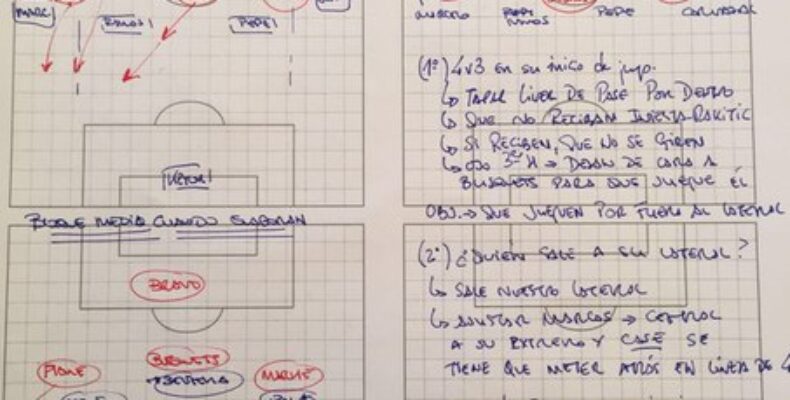 MARC.
RAMOS
PEPE
BLOQUE MEDIO CUANDO ELABORAN
BRAVO
PIQUE
BUSQUETS
BENZEMA
MARCELO
PEPE
CARVAJAL
(1º) 4v3 en su inicio de juego.
↳ TAPAR LINEA DE PASE POR DENTRO
↳ QUE NO RECIBAN INIESTA-RAKITIC
↳ SI RECIBEN, QUE NO SE GIREN
↳ 3er H → DEJAN DE CARA A
BUSQUETS PARA QUE JUEGUE ÉL
OBJ. → QUE JUEGUEN POR FUERA AL LATERAL
(2º) ¿QUIÉN SALE A SU LATERAL?
↳ SALE NUESTRO LATERAL
↳ MARCAS → CENTRAL
A SU EXTREMO Y CASE SE
TIENE QUE METER ATRÁS EN LÍNEA DE 4